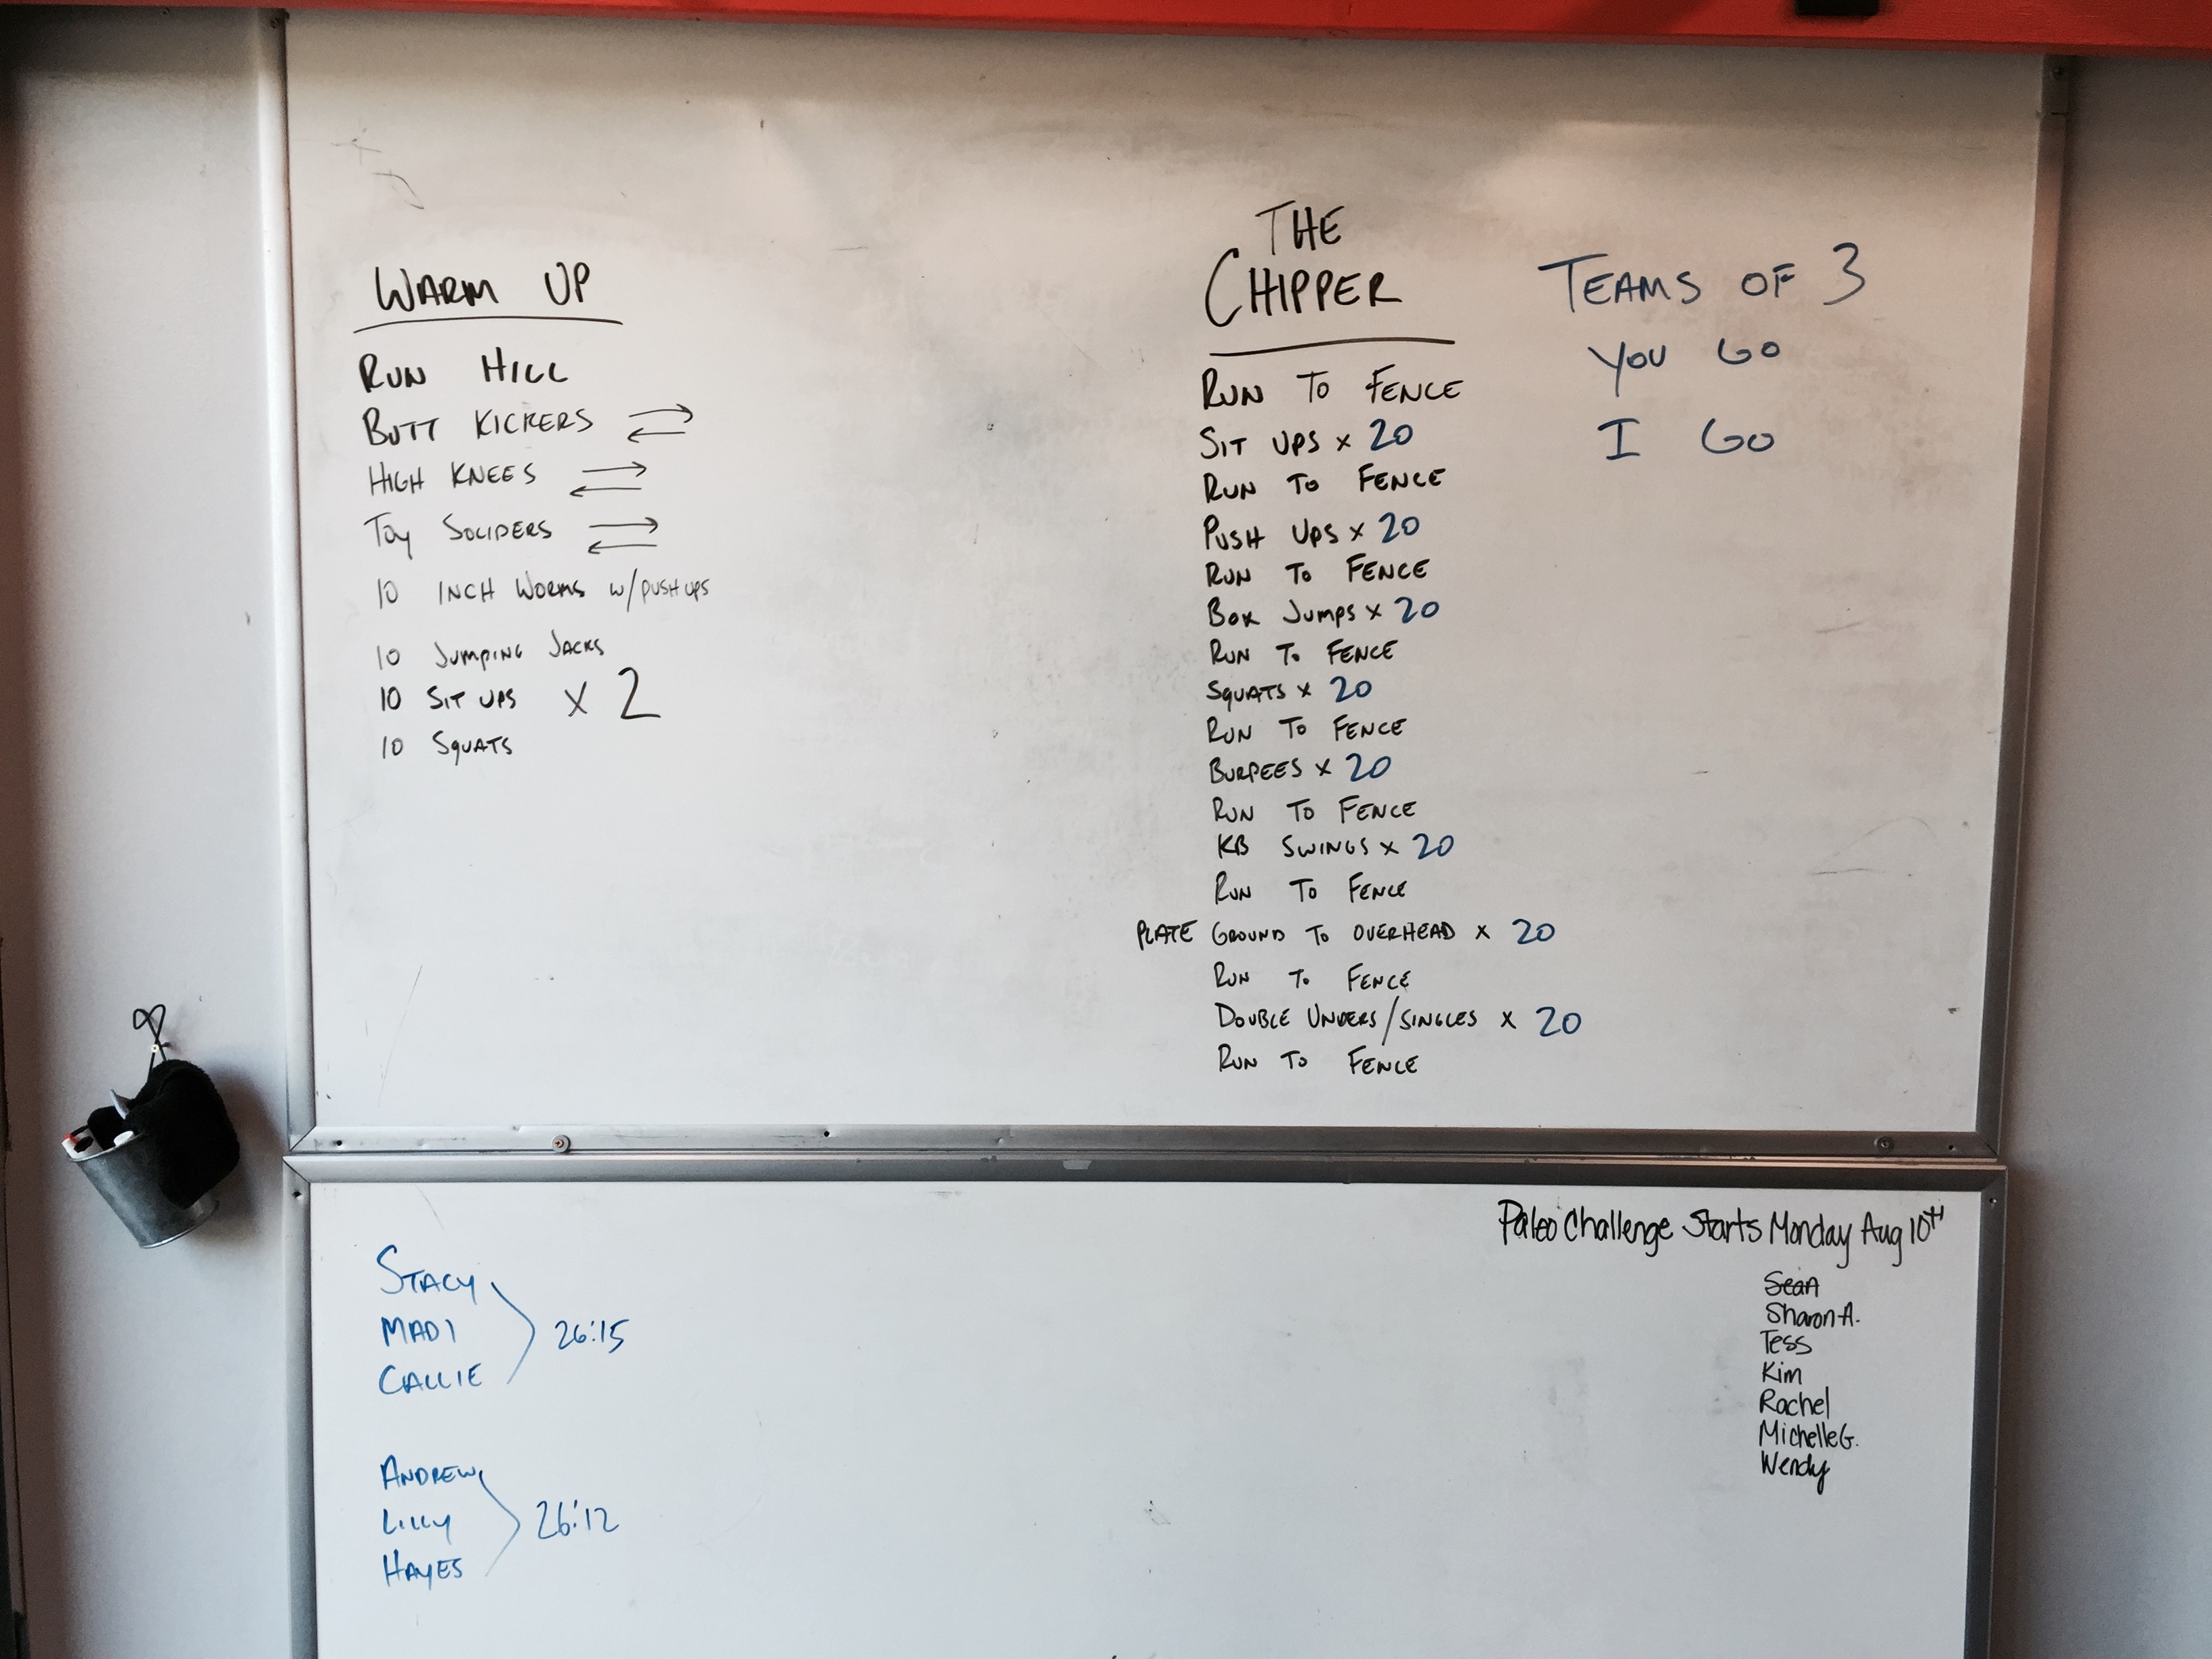 WARM UP
RUN HILL
BUTT KICKERS
HIGH KNEES
TOY SOLIDERS
10 INCH WORMS W/PUSH UPS
10 JUMPING JACKS
10 SIT UPS X 2
10 SQUATS
THE
CHIPPER
RUN TO FENCE
SIT UPS X 20
RUN TO FENCE
PUSH UPS X 20
RUN TO FENCE
BOX JUMPS X 20
RUN TO FENCE
SQUATS X 20
RUN TO FENCE
BURPEES X 20
RUN TO FENCE
KB SWINGS X 20
RUN TO FENCE
PLATE GROUND TO OVERHEAD X 20
RUN TO FENCE
DOUBLE UNDERS/SINGLES X 20
RUN TO FENCE
TEAMS OF 3
YOU GO
I GO
STACY
MADI
CALLIE
26:15
ANDREW
LILLY
HAYES
26:12
Paleo Challenge Starts Monday Aug 10TH
Sean
Sharon A.
Tess
Kim
Rachel
Michelle G.
Wendy